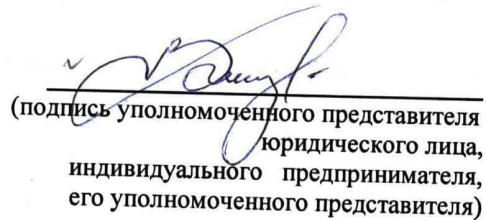 (подпись уполномоченного представителя
юридического лица,
индивидуального предпринимателя,
его уполномоченного представителя)